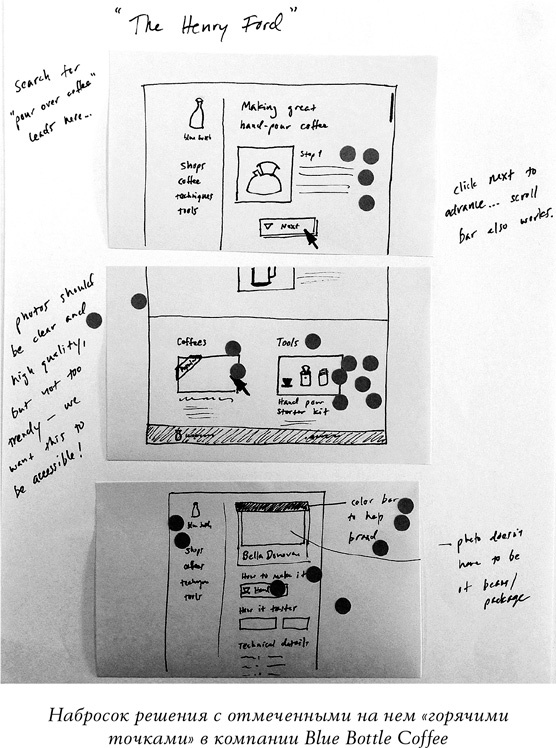 "The Henry Ford"
search for
"pour over coffee"
leads here...
blue bottle
shops
coffee
techniques
tools
Making great
hand-pour coffee
Step 1
Next
click next to
advance... scroll
bar also works.
photos should
be clear and
high quality,
but not too
trendy — we
want this to
be accessible!
Coffees
Tools
Hand pour
starter kit
shops
coffees
techniques
tools
Bella Donovan
How to make it
How it tastes
Technical details
color bar
to help
brand
photo doesn't
have to be
of beans/
package
Набросок решения с отмеченными на нем «горячими
точками» в компании Blue Bottle Coffee